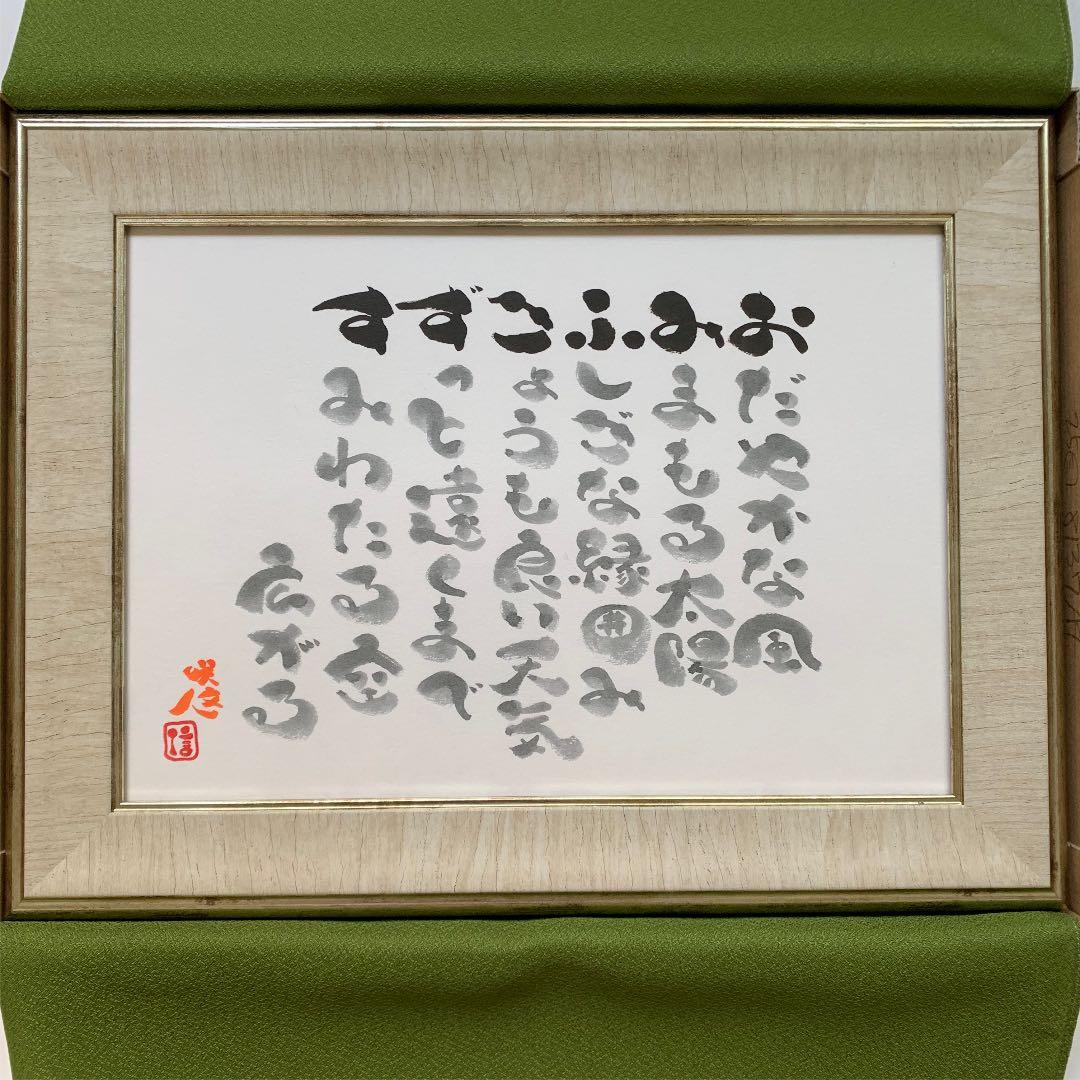 おだやかな風
みまもる太陽
ふしぎな縁囲み
さょうも良い天気
ずっと遠くまで
すみわたる空
広がる